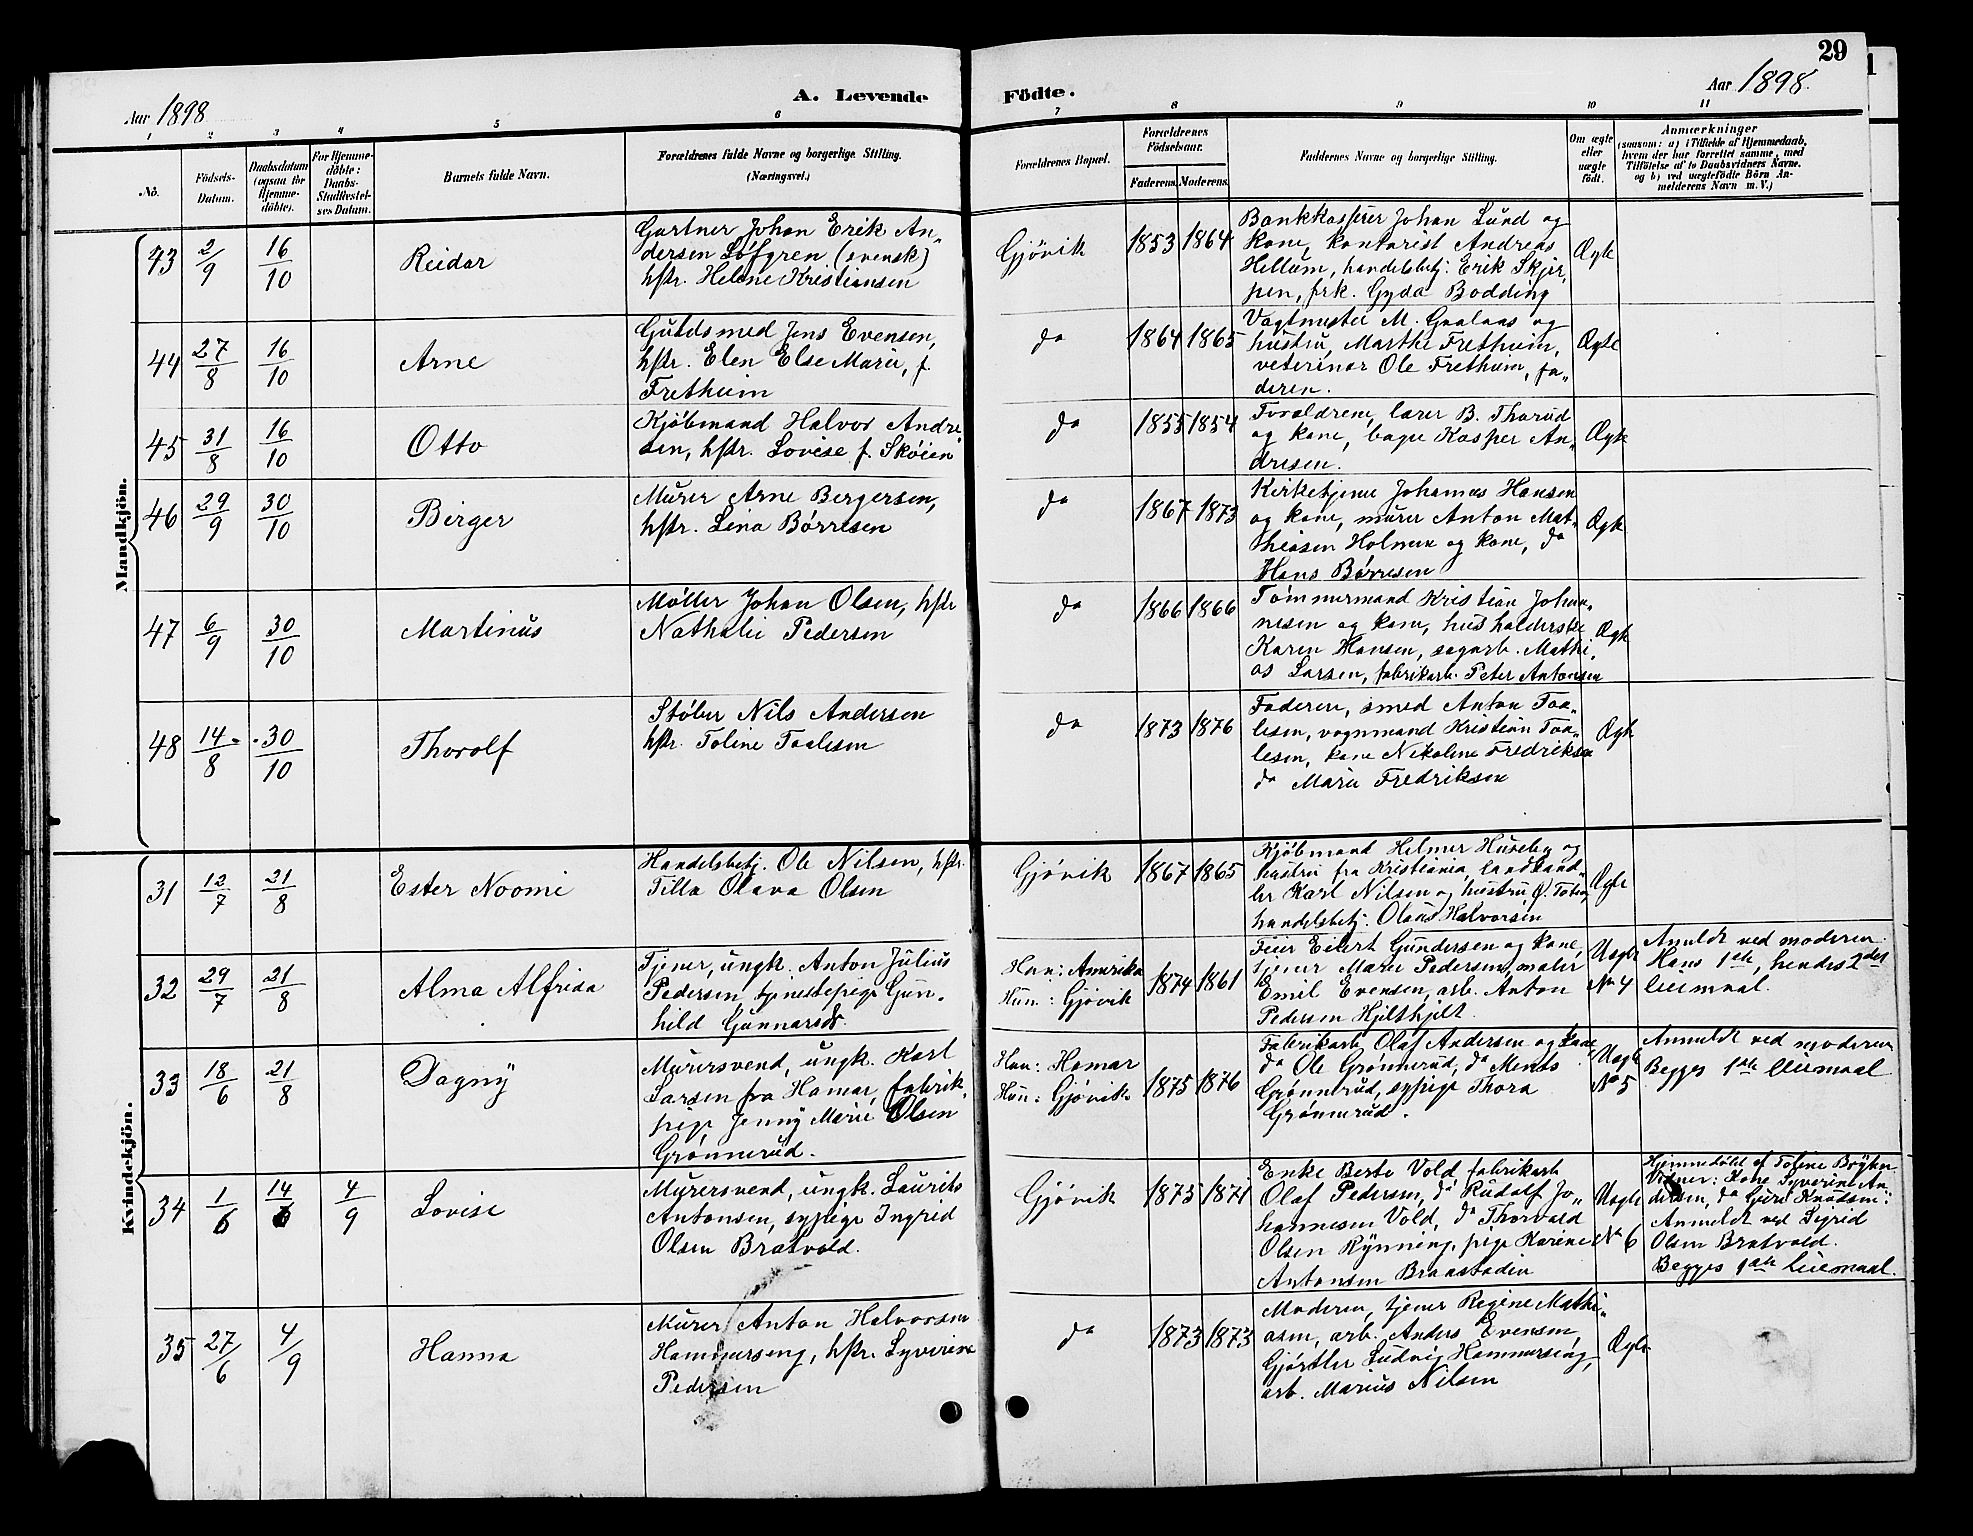 29
Aar 1898
A. Levende
Födte.
Aar 1898.
1 2 3 4 5 6 7 8 9 10 11
No.
Födsels-
Datum.
Daabsdatum
(ogsaa for
Hjemme-
döbte).
For Hjemme-
döbte:
Daabs-
Stadfæstel-
ses Datum.
Barnets fulde Navn.
Forældrenes fulde Navne og borgerlige Stilling.
(Næringsvei.)
Forældrenes Bopæl.
Forældrenes
Födselsaar.
Faderens. Moderens.
Faddernes Navne og borgerlige Stilling.
Om ægte
eller
uægte
født.
Anmærkninger
(saasom: a) i Tilfælde af Hjemmedaab,
hvem der har forrettet samme, med
Tilföielse af to Daabsvidners Navne.
og b) ved uægtefödte Börn An-
melderens Navn m. V.)
Mandkjön.
43 2/9 16/10 Reidar
Gartner Johan Erik An„
dersen Löfgren (svensk)
hstr. Helene Kristiansen
Gjövik 1853 1864
Bankkasserer Johan Lund og
kone, kontorist Andreas
Hellum, handelsbetj. Erik Skjer,
pen, frk. Gyda Bodding
Ægte
44 27/8 16/10 Arne
Guldsmed Jens Evensen,
hstr. Elen Else Marie, f.
Frethum
do 1864 1865
Vagtmester M. Gaalaas og
hustru, Marthe Frethum,
veterinær Ole Frethum, fa„
deren.
Ægte
45 31/8 16/10 Otto
Kjöbmand Halvor Andre
sen, hstr. Lovise f. Sköien
do 1855 1854
Forældrene, lærer B. Thorud
og kone, bager Kasper An„
dresen.
Ægte
46 29/9 30/10 Birger
Murer Arne Bergersen,
hstr. Lina Börresen
do 1867 1873
Kirketjener Johannes Hansen
og kone, murer Anton Mat„
hiasen Holmen og kone, do
Hans Börresen
Ægte
47 6/9 30/10 Martinus
Möller Johan Olsen, hstr
Nathalie Pedersen
do 1866 1866
Tömmermand Kristian Johan„
nesen og kone, husholderske
Karen Hansen, sagarb. Mathi,
as Larsen, fabrikarb. Peter Antonsen
Ægte
48 14/8 30/10 Thorolf
Stöber Nils Andersen
hstr. Toline Taalesen
do 1873 1876
Faderen, smed Anton Taa„
lesen, vognmand Kristian Taa„
lesen, kone Nikoline Fredriksen
do Marie Fredriksen
Ægte
Kvindekjön.
31 12/7 21/8 Ester Noomi
Handelsbetj. Ole Nilsen, hstr.
Tilla Olava Olsen
Gjövik 1867 1865
Kjöbmand Helmer Huseby og
hustru fra Kristiania, landhand„
ler Karl Nilsen og hustru, O.
handelsbetj. Olaus Halvorsen
Ægte
32 29/7 21/8 Alma Alfrida
Tjener, ungk. Anton Julius
Pedersen, tjenestepige Gun„
hild Gunnarsdr.
Han: Amerika
Hun: Gjövik
1874 1861
Feier Eilert Gundersen og kone,
tjener Marie Pedersen, maler
Emil Evensen, arb. Anton
Pedersen Hjelthjelt.
Uægte
No 4
Anmeldt ved moderen
Hans 1ste, hendes 2det
leiemaal.
33 18/6 21/8 Dagny
Murersvend, ungk. Karl
Larsen fra Hamar, fabrik„
pige Jenny Marie Olsen
Grönnerud.
Han: Hamar
Hun: Gjövik
1875 1876
Fabrikarb. Olaf Andersen og kone
do Ole Grönnerud, do Ments
Grönnerud, sypige Thora
Grönnerud.
Uægte
No 5
Anmeldt ved moderen
Begges 1ste leiemaal
34 1/6 14/6 4/9 Lovise
Murersvend, ungk. Laurits
Antonsen, sypige Ingrid
Olsen Bratvold.
Gjövik 1875 1871
Enke Berte Vold, fabrikarb
Olaf Pedersen, do Rudolf Jo„
hannesen Vold, do Thorvald
Olsen Rynning, pige Karine
Antonsen Braastadin
Uægte
No 6
Hjemmedöbt af Toline
Vidner: Kone Syverine An
dersen, do Knudsen:
Anmeldt ved Sigrid
Olsen Bratvold.
Begges 1ste leiemaal.
35 27/6 4/9 Hanna
Murer Anton Halvorsen
Hammerseng, hstr. Syverine
Pedersen
do 1873 1873
Moderen, tjener Regine Mathi„
asen, arb. Anders Evensen,
Gjörtler Ludvig Hammerseng,
arb. Marius Nilsen
Ægte